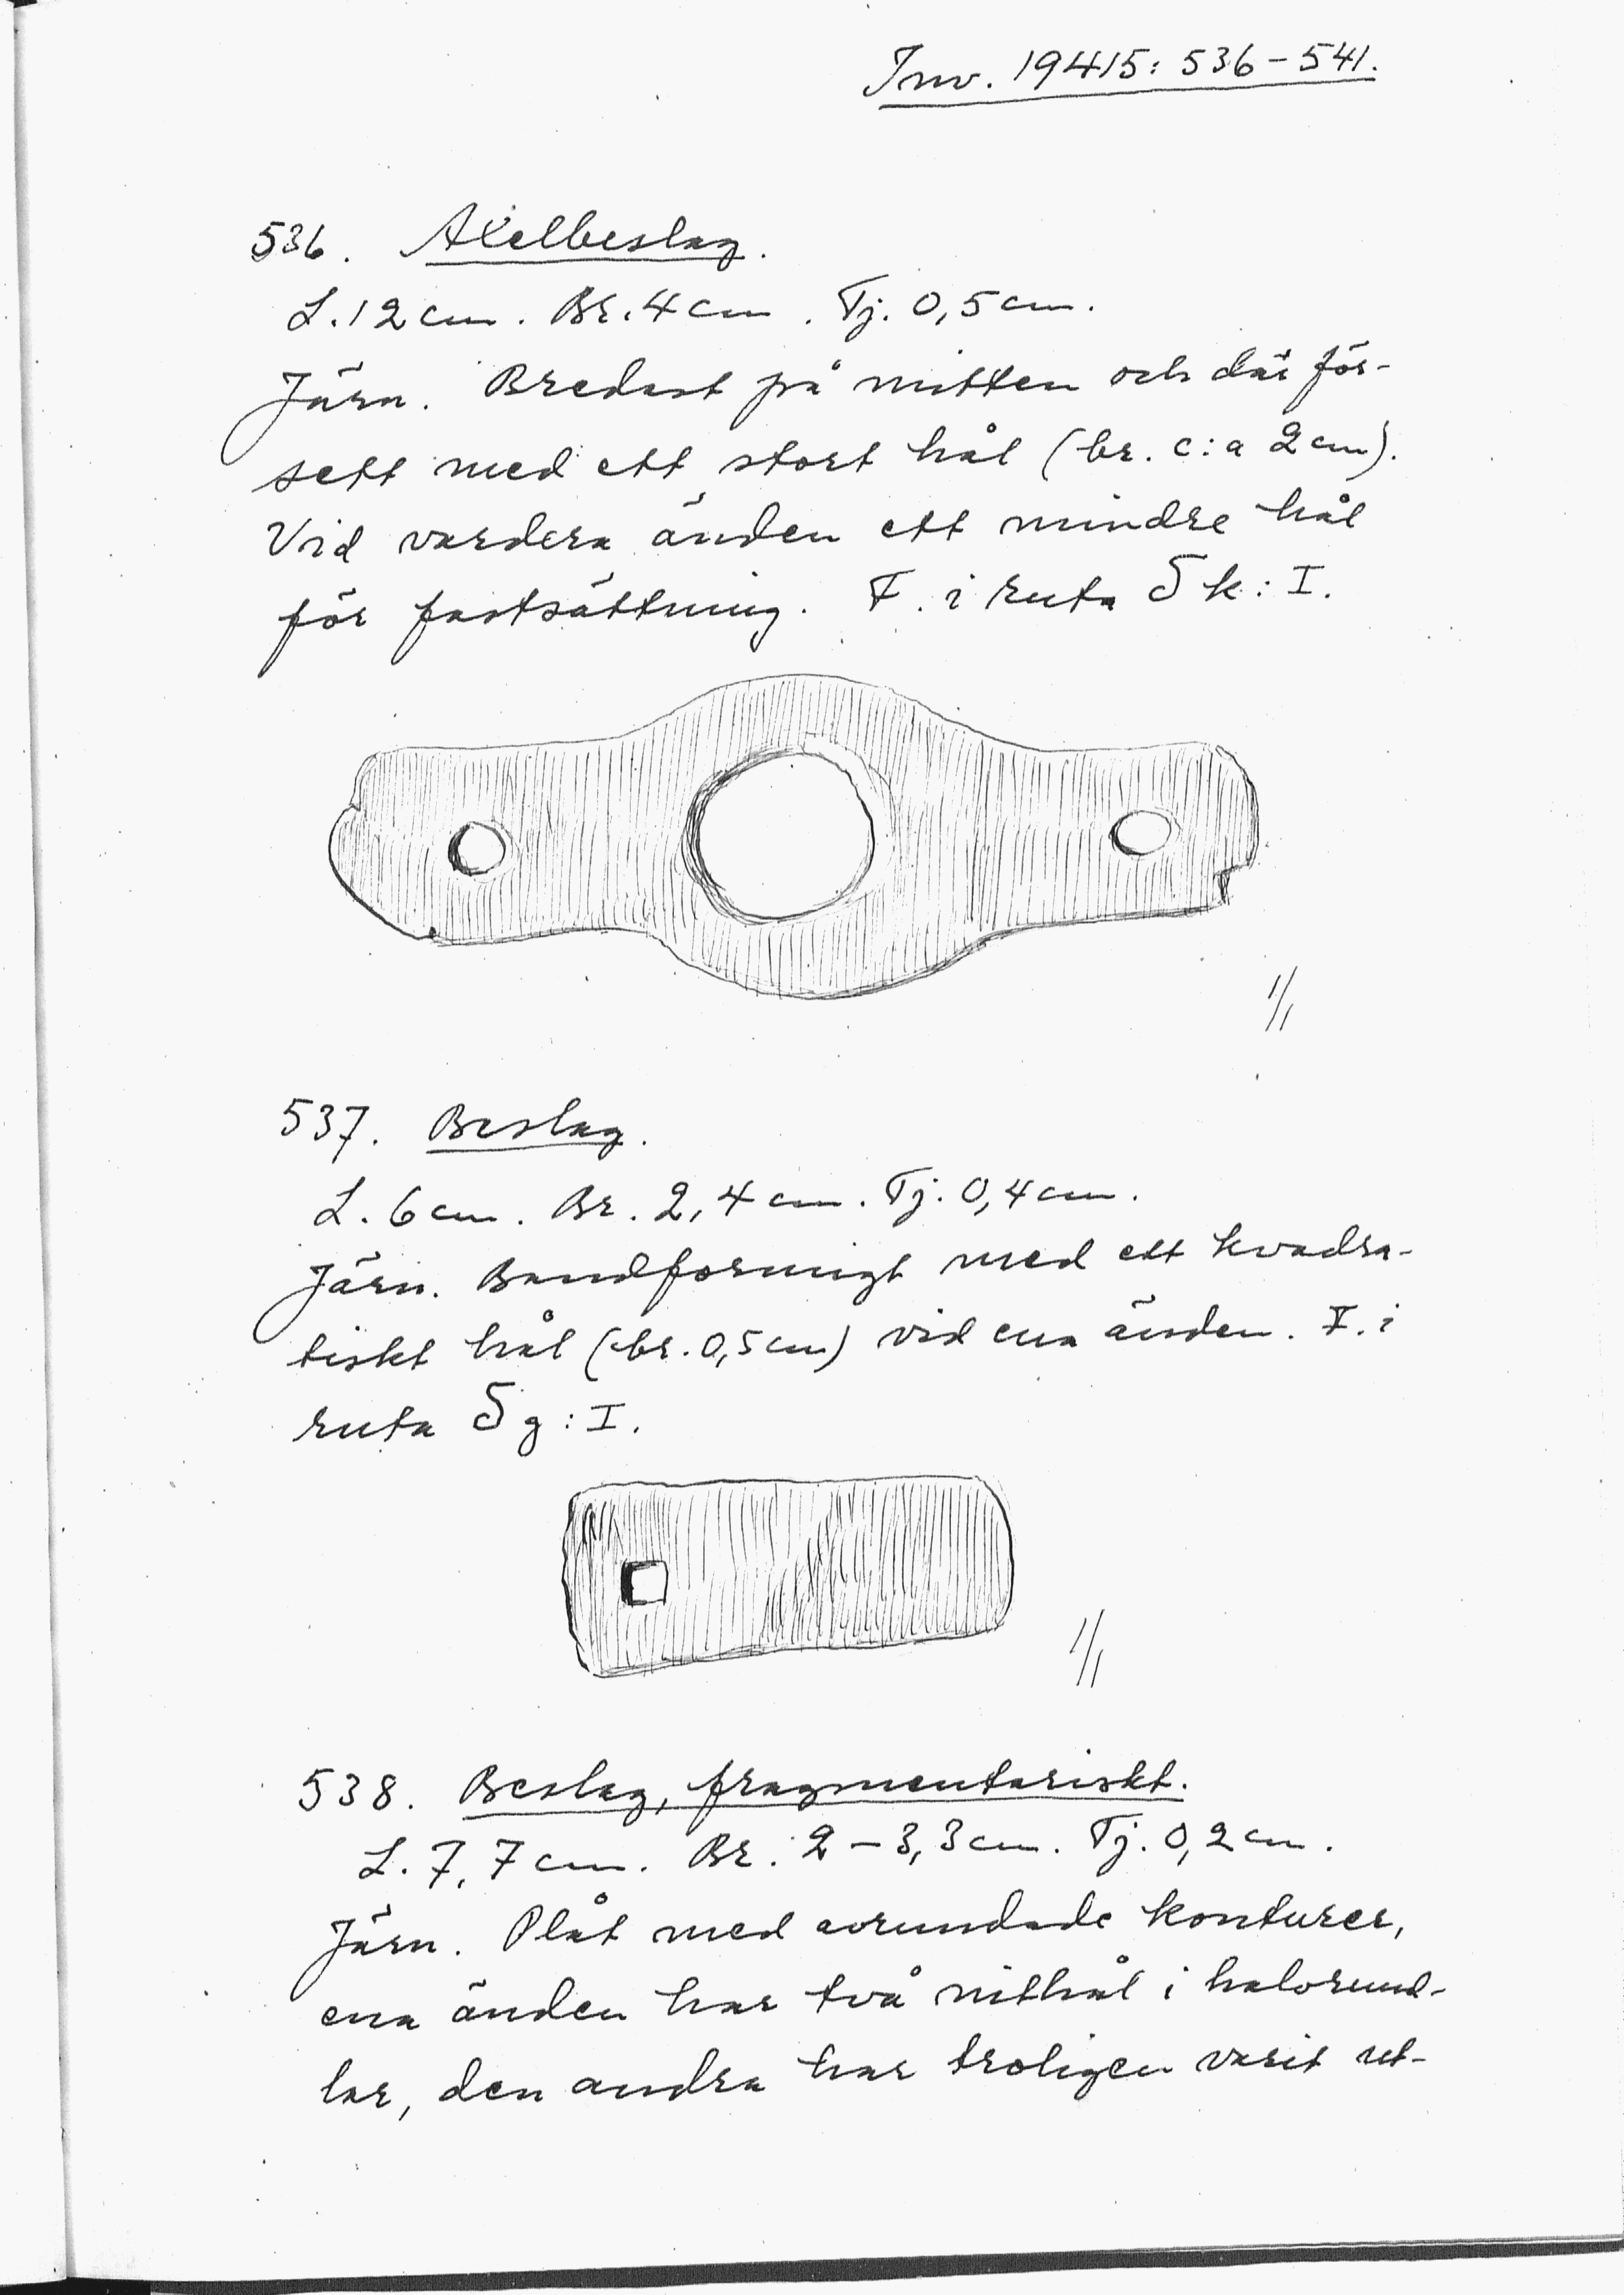 Inv. 19415: 536-541.
536. Axelbeslag.
L. 12 cm. Br. 4 cm. Tj. 0,5 cm.
Järn. Bredast på mitten och där för-
sett med ett stort hål (br. c:a 2 cm).
Vid vardera änden ett mindre hål
för fastsättning. F. i ruta δ k: I.
1/1
537. Beslag.
L. 6 cm. Br. 2,4 cm. Tj. 0,4 cm.
Järn. Bandformigt med ett kvadra-
tiskt hål (br. 0,5 cm) vid ena änden. F. i
ruta δ g: I.
1/1
538. Beslag, fragmentariskt.
L. 7,7 cm. Br. 2-3,3 cm. Tj. 0,2 cm.
Järn. Plåt med avrundade konturer,
ena änden har två nithål i halvrund-
lar, den andra har troligen varit ut-